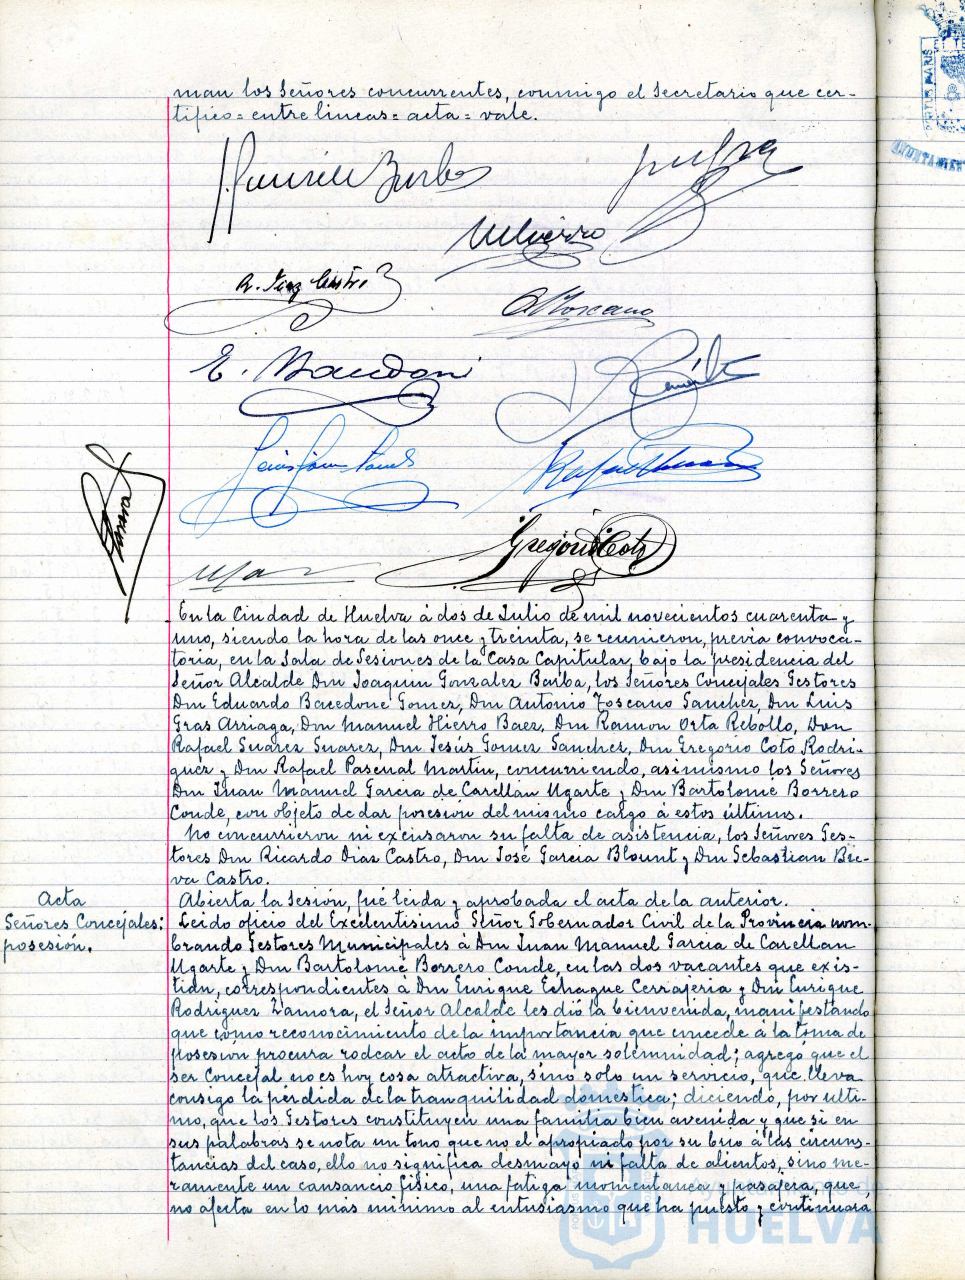 man los Señores concurrentes, conmigo el Secretario que cer-
tifico = entre lineas = acta = vale.
E.
Rafael
Gregorio Coto
En la Ciudad de Huelva á dos de Julio de mil novecientos cuarenta y
uno, siendo la hora de las once y treinta, se reunieron, previa convoca-
toria, en la Sala de Sesiones de la Casa Capitular, bajo la presidencia del
Señor Alcalde Don Joaquin Gonzalez Barba, los Señores Concejales Gestores
Don Eduardo Bacedoné Gomez, Don Antonio Toscano Sanchez, Don Luis
Gras Arriaga, Don Manuel Hierro Baez, Don Ramon Orta Rebollo, Don
Rafael Suarez Suarez, Don Jesús Gomez Sanchez, Don Gregorio Coto Rodri-
guez y Don Rafael Pascual Martin, concurriendo, asimismo los Señores
Don Juan Manuel Garcia de Carellán Ugarte y Don Bartolomé Borrero
Conde, con objeto de dar posesión del mismo cargo á estos últimos.
No concurrieron ni excusaron su falta de asistencia, los Señores Ges-
tores Don Ricardo Diaz Castro, Don José Garcia Blount y Don Sebastian Bie-
va Castro.
Abierta la Sesión, fué leida y aprobada el acta de la anterior.
Acta
Señores Concejales:
posesión.
Leido oficio del Excelentisimo Señor Gobernador Civil de la Provincia nom-
brando Gestores Municipales á Don Juan Manuel Garcia de Carellan
Ugarte y Don Bartolomé Borrero Conde, en las dos vacantes que exis-
tian, correspondientes á Don Enrique Echague Cerrajeria y Don Enrique
Rodriguez Zamora, el Señor Alcalde les dió la bienvenida, manifestando
que como reconocimiento de la importancia que concede á la toma de
posesión procura rodear el acto de la mayor solemnidad; agregó que el
ser Concejal no es hoy cosa atractiva, sino solo un servicio, que lleva
consigo la pérdida de la tranquilidad doméstica; diciendo, por ulti-
mo, que los Gestores constituyen una familia bien avenida y que si en
sus palabras se nota un tono que no el apropiado por su brio á las circuns-
tancias del caso, ello no significa desmayo ni falta de alientos, sino me-
ramente un cansancio fisico, una fatiga momentanea y pasajera, que
no afecta en lo más minimo al entusiasmo que ha puesto y continuará
Ayuntamiento de
HUELVA